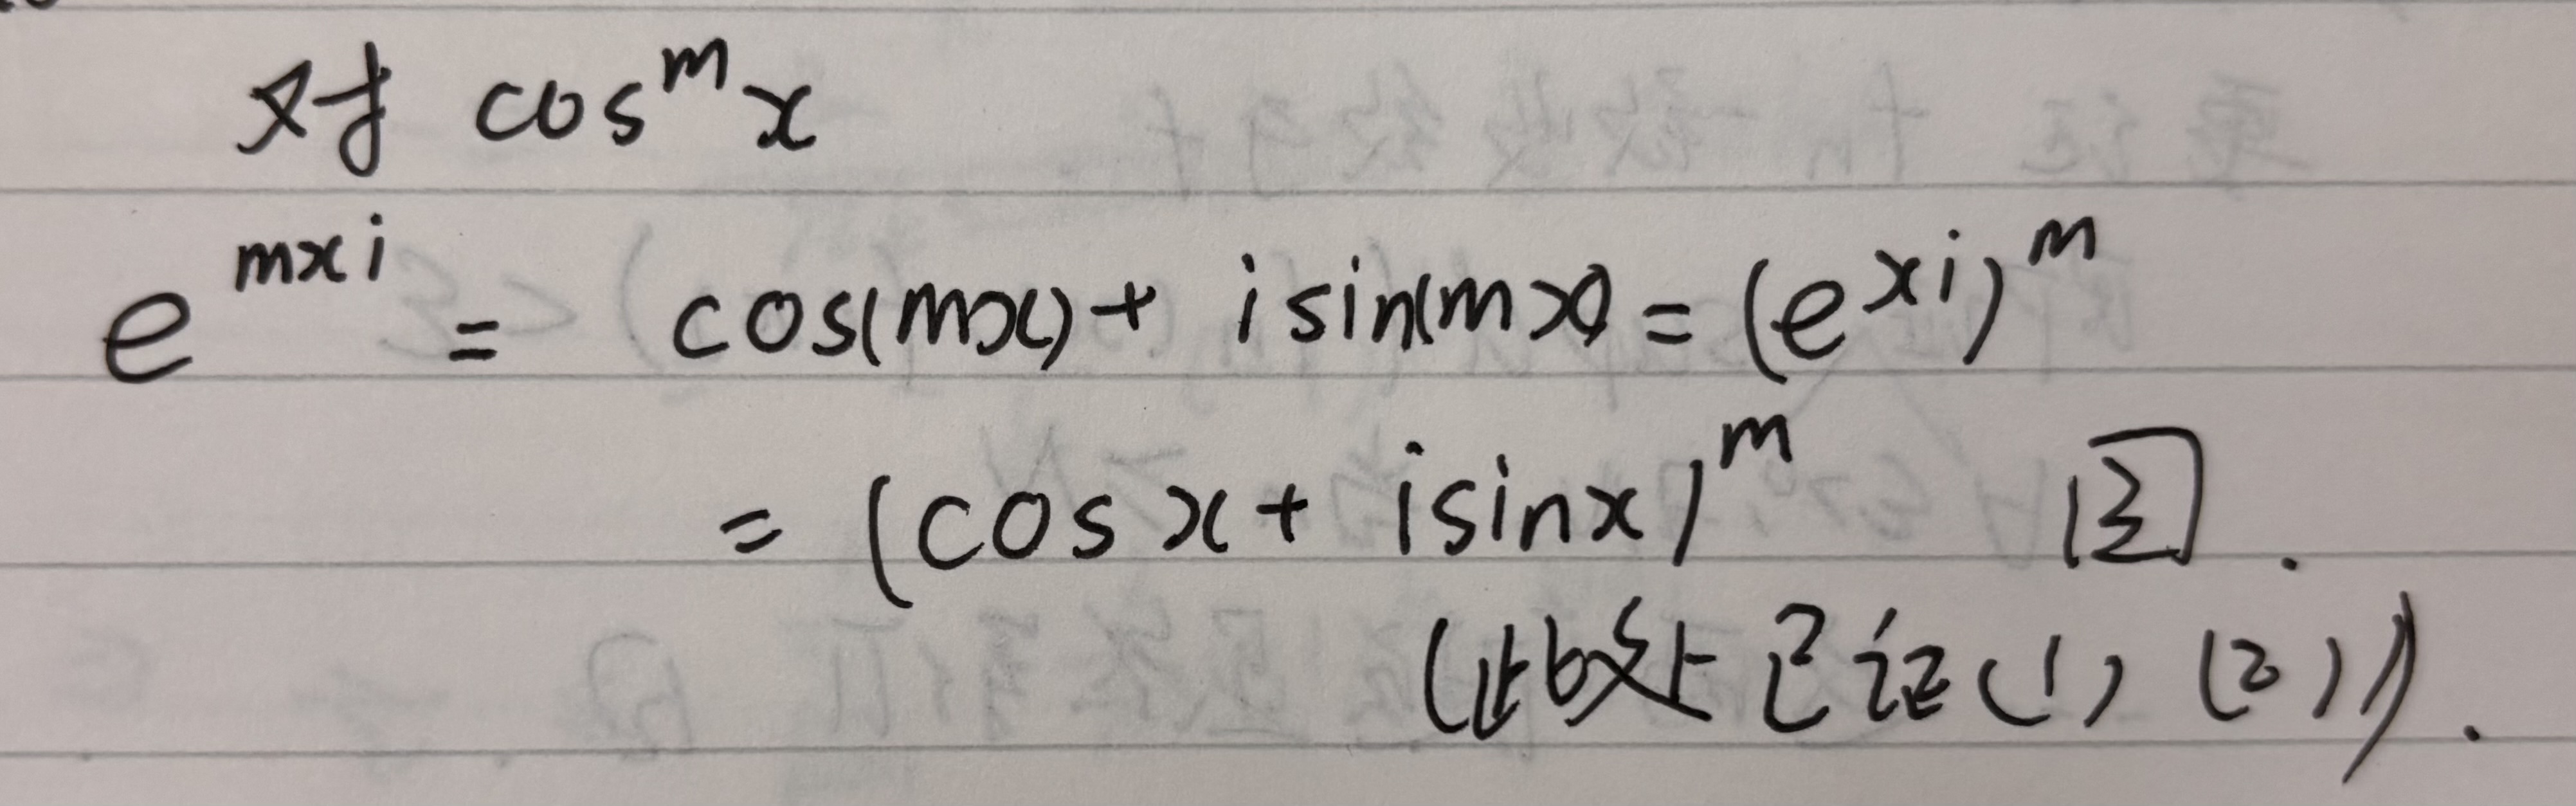 对 cos^m x
e^{mxi} = cos(mx) + i sin(mx) = (e^{xi})^m
= (cos x + i sin x)^m
(此处已证(1)(2)).